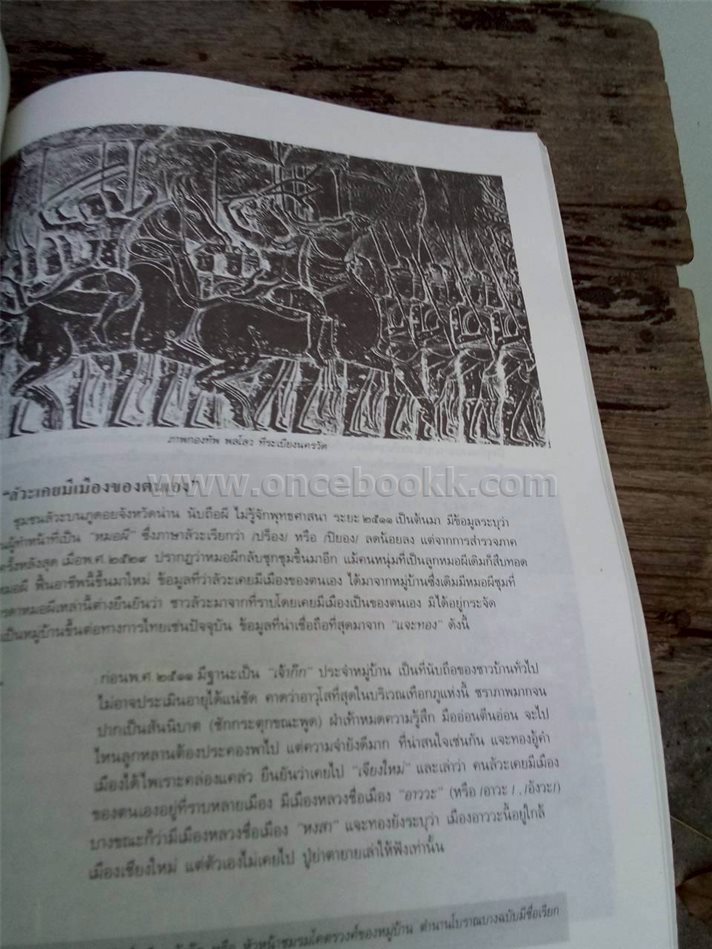 ภาพกองทัพ พลโลว ที่ระเบียงนครวัด
www.oncebookk.com
"ลัวะเคยมีเมืองของตนเอง"
ชุมชนลัวะบนภูดอยจังหวัดน่าน นับถือผี ไม่รู้จักพุทธศาสนา ระยะ ๒๕๑๑ เป็นต้นมา มีข้อมูลระบุว่า
ผู้ทำหน้าที่เป็น "หมอผี" ซึ่งภาษาลัวะเรียกว่า /ปร็อง/ หรือ /ปิยอง/ ลดน้อยลง แต่จากการสำรวจภาค
ครั้งหลังสุด เมื่อพ.ศ. ๒๕๒๙ ปรากฏว่าหมอผีกลับชุกชุมขึ้นมาอีก แม้คนหนุ่มที่เป็นลูกหมอผีเดิมก็สืบทอด
หมอผี ฟื้นอาชีพนี้ขึ้นมาใหม่ ข้อมูลที่ว่าลัวะเคยมีเมืองของตนเอง ได้มาจากหมู่บ้านซึ่งเดิมมีหมอผีชุมที่
รดาหมอผีเหล่านี้ต่างยืนยันว่า ชาวลัวะมาจากที่ราบโดยเคยมีเมืองเป็นของตนเอง มิได้อยู่กระจัด
เป็นหมู่บ้านขึ้นต่อทางการไทยเช่นปัจจุบัน ข้อมูลที่น่าเชื่อถือที่สุดมาจาก "แจะทอง" ดังนี้
ก่อนพ.ศ. ๒๕๑๑ มีฐานะเป็น "เจ้ากี๊ก" ประจำหมู่บ้าน เป็นที่นับถือของชาวบ้านทั่วไป
ไม่อาจประเมินอายุได้แน่ชัด คาดว่าอาวุโสที่สุดในบริเวณเทือกภูแห่งนี้ ชราภาพมากจน
ปากเป็นสันนิบาต (ชักกระตุกขณะพูด) ฝ่าเท้าหมดความรู้สึก มืออ่อนตีนอ่อน จะไป
ไหนลูกหลานต้องประคองพาไป แต่ความจำยังดีมาก ที่น่าสนใจเช่นกัน แจะทองอู้คำ
เมืองได้ไพเราะคล่องแคล่ว ยืนยันว่าเคยไป "เจียงใหม่" และเล่าว่า คนลัวะเคยมีเมือง
ของตนเองอยู่ที่ราบหลายเมือง มีเมืองหลวงชื่อเมือง "อาววะ" (หรือ /อาวะ /../อังวะ/)
บางขณะก็ว่ามีเมืองหลวงชื่อเมือง "หงสา" แจะทองยังระบุว่า เมืองอาววะนี้อยู่ใกล้
เมืองเชียงใหม่ แต่ตัวเองไม่เคยไป ปู่ย่าตายายเล่าให้ฟังเท่านั้น
หรือ หัวหน้าชมรมโคตรวงศ์ของหมู่บ้าน ตำนานโบราณบางฉบับมีชื่อเรียก